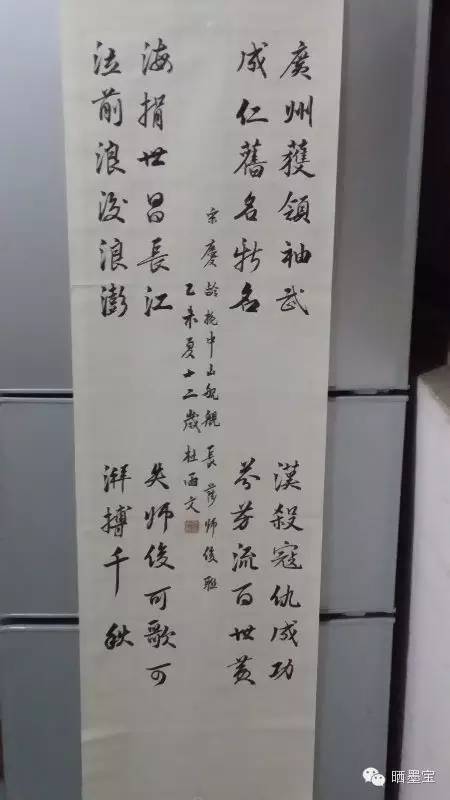 廣州護領袖武漢殺寇仇成功
成仁舊名新名芬芳流百世黃
海捐世昌長江失師俊可歌可
泣前浪後浪澎湃搏千秋
宋慶齡挽中山舰舰長薩師俊联
乙未夏十二歲杜涵文
晒墨宝